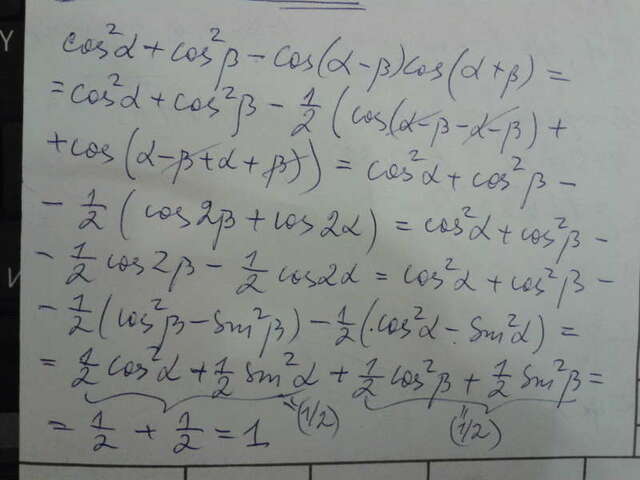 cos²α + cos²β - cos(α-β)cos(α+β) =
= cos²α + cos²β - 1/2 (cos(α-β-α-β) +
+ cos(α-β+α+β)) = cos²α + cos²β -
- 1/2 (cos2β + cos2α) = cos²α + cos²β -
- 1/2 cos2β - 1/2 cos2α = cos²α + cos²β -
- 1/2 (cos²β - sin²β) - 1/2 (cos²α - sin²α) =
= 1/2 cos²α + 1/2 sin²α + 1/2 cos²β + 1/2 sin²β =
= 1/2 + 1/2 = 1 =(1/2) =(1/2)